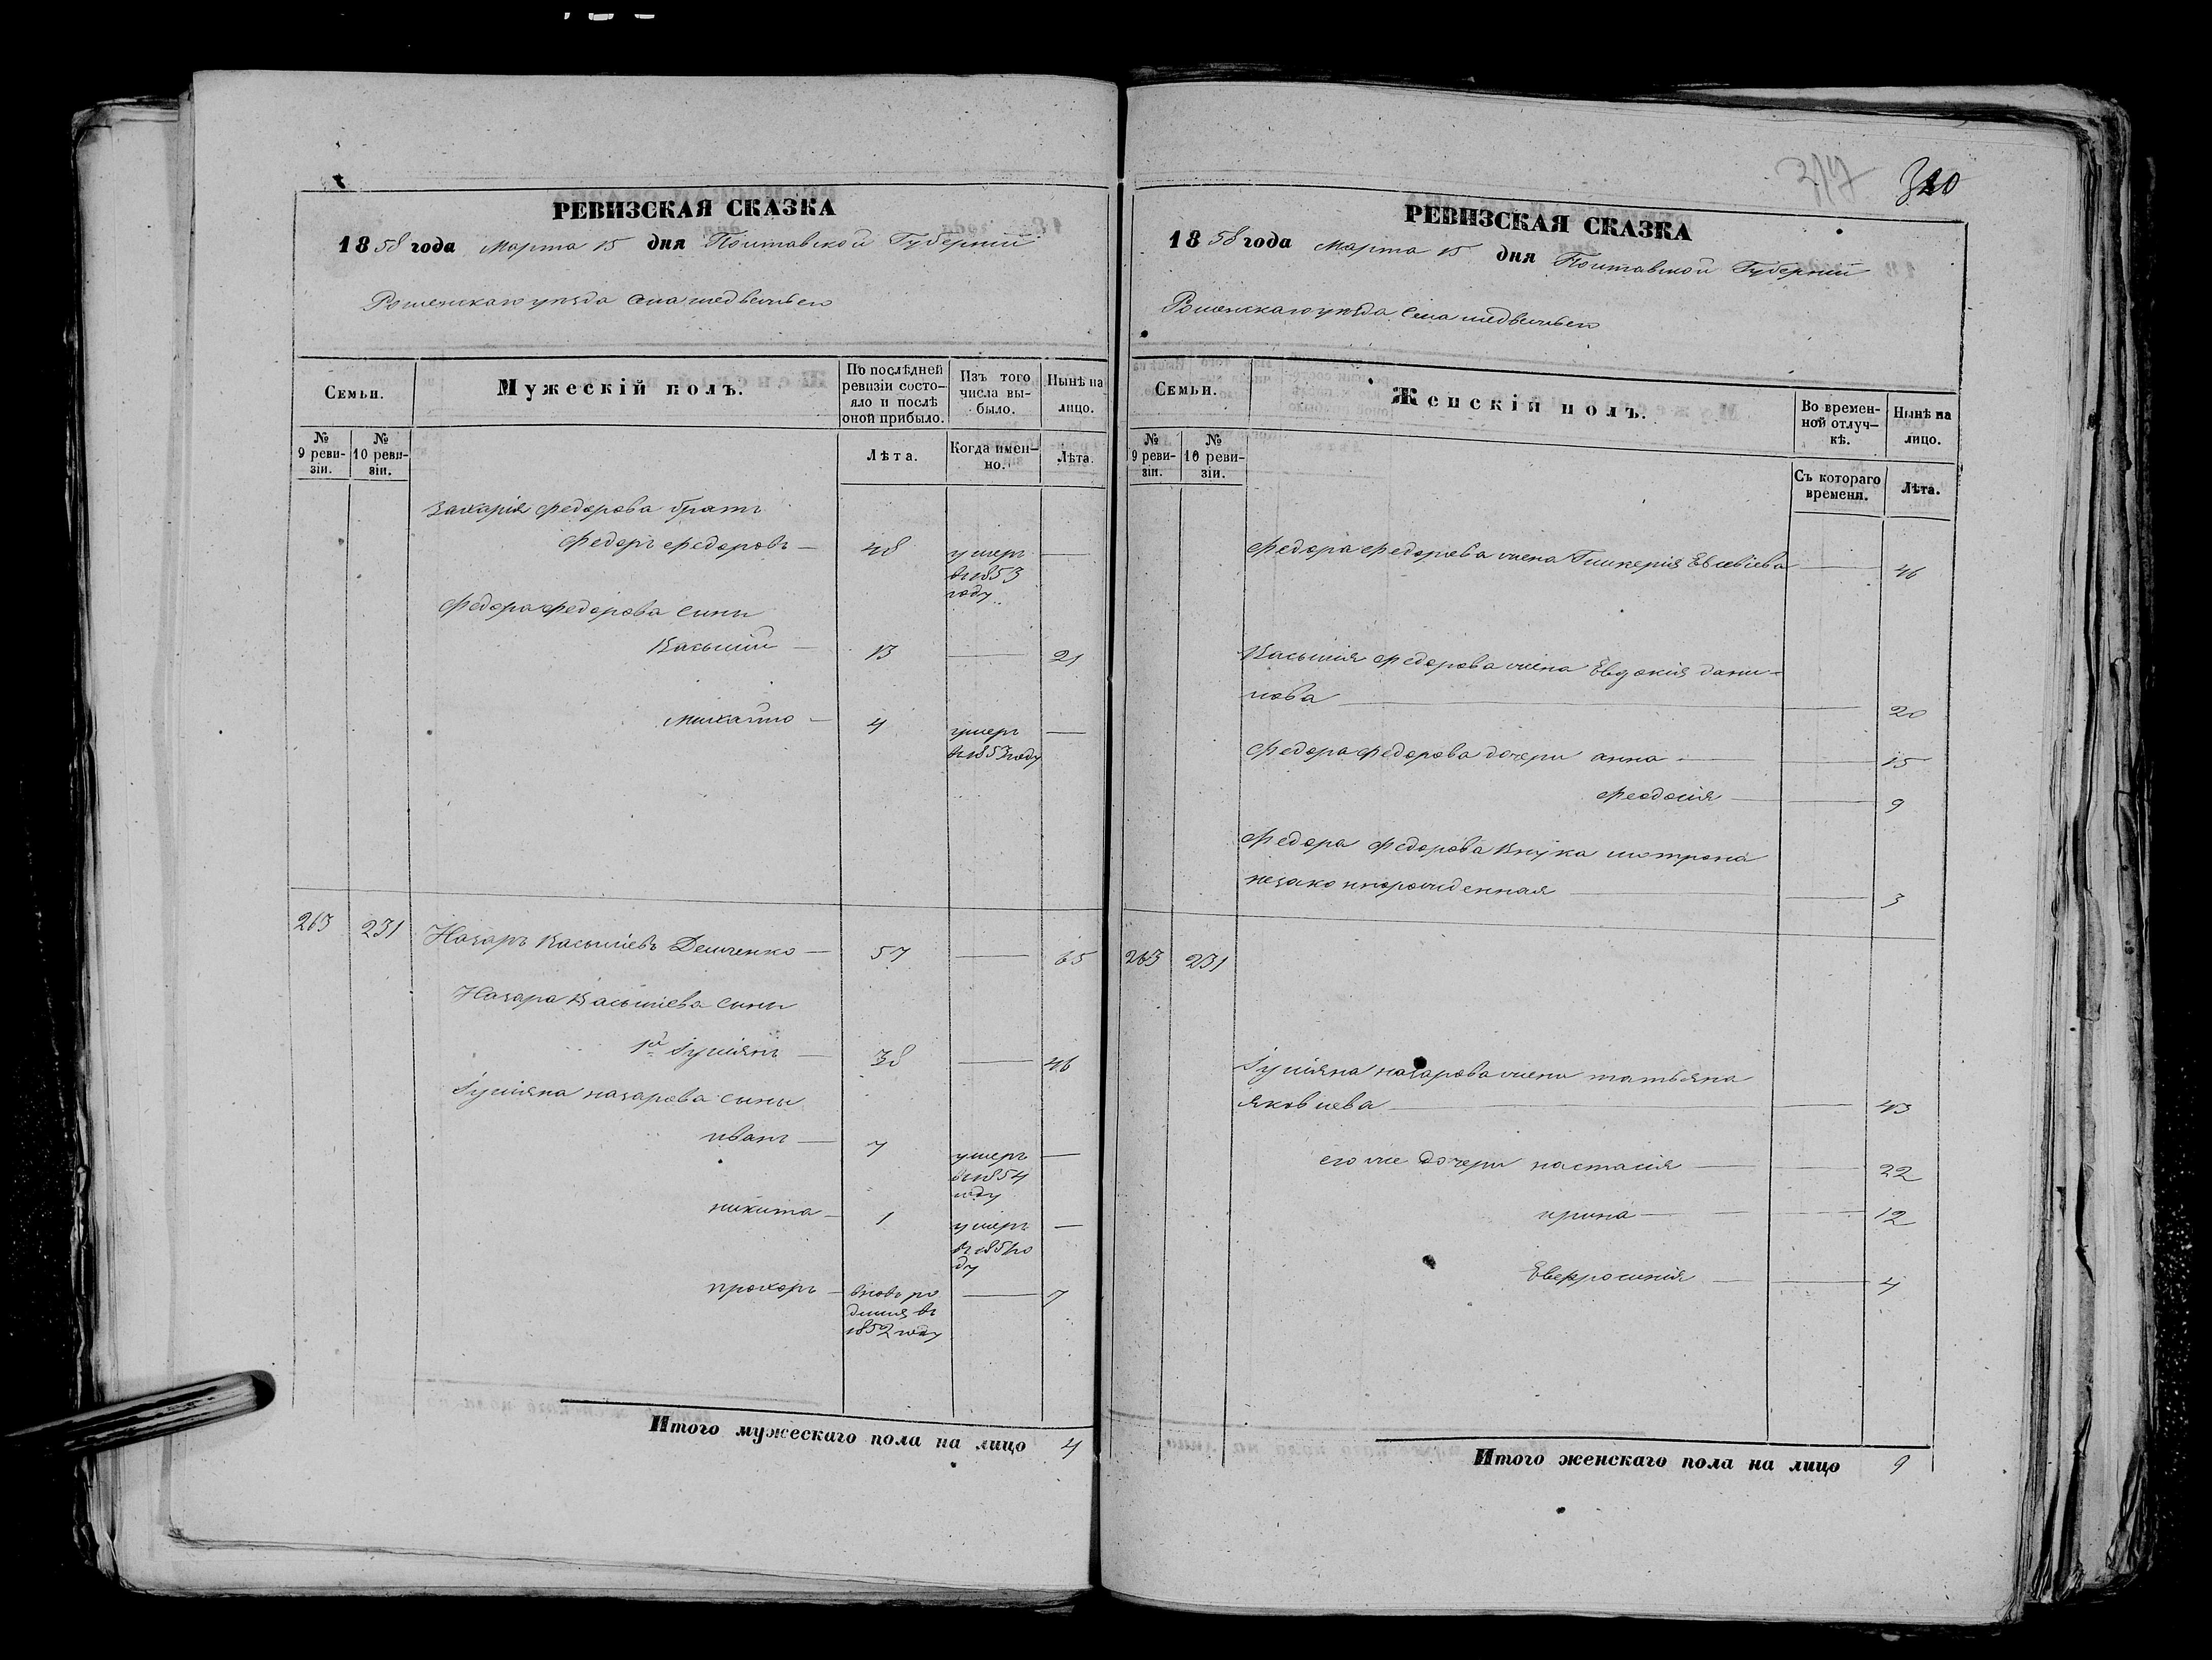 317 320
РЕВИЗСКАЯ СКАЗКА
1858 года Марта 15 дня Полтавской Губерніи
Роменскаго уезда Села Медвежьего
Семьи.
Мужескій полъ.
По послѣдней ревизіи состо-
яло и послѣ
оной прибыло.
Изъ того
числа вы-
было.
Нынѣ на
лицо.
№
9 реви-
зіи.
№
10 реви-
зіи.
Лѣта.
Когда имен-
но.
Лѣта.
Захарія Федорова братъ
Федоръ Федоровъ — 48 умеръ —
въ 1853
году
Федора Федорова сыны
Василий — 13 — 21
Михайло — 4 умеръ —
въ 1853 году
263 231 Назаръ Василіевъ Демченко — 57 — 65
Назара Василіева сыны
1й Іуліянъ — 38 — 46
Іуліяна Назарова сыны
Иванъ — 7 умеръ —
въ 1854
году
Никита — 1 умеръ —
въ 1851 го
ду
Прохоръ — вновь ро — 7
дился въ
1852 году
Итого мужескаго пола на лицо 4
РЕВИЗСКАЯ СКАЗКА
1858 года Марта 15 дня Полтавской Губерніи
Роменскаго уезда Села Медвежьего
Семьи.
Женскій полъ.
Во времен-
ной отлуч-
кѣ.
Нынѣ на
лицо.
№
9 реви-
зіи.
№
10 реви-
зіи.
Съ котораго
времени.
Лѣта.
Федора Федорова жена Гликерія Евсевіева — 46
Василія Федорова жена Евдокія Дани-
лова — 20
Федора Федорова дочери Анна — 15
Феодосія — 9
Федора Федорова внука Мотрона
незаконнорожденная — 3
263 231
Іуліяна Назарова жена Татьяна
Яковлева — 43
его же дочери Настасія — 22
Ирина — 12
Евфросинія — 4
Итого женскаго пола на лицо 9